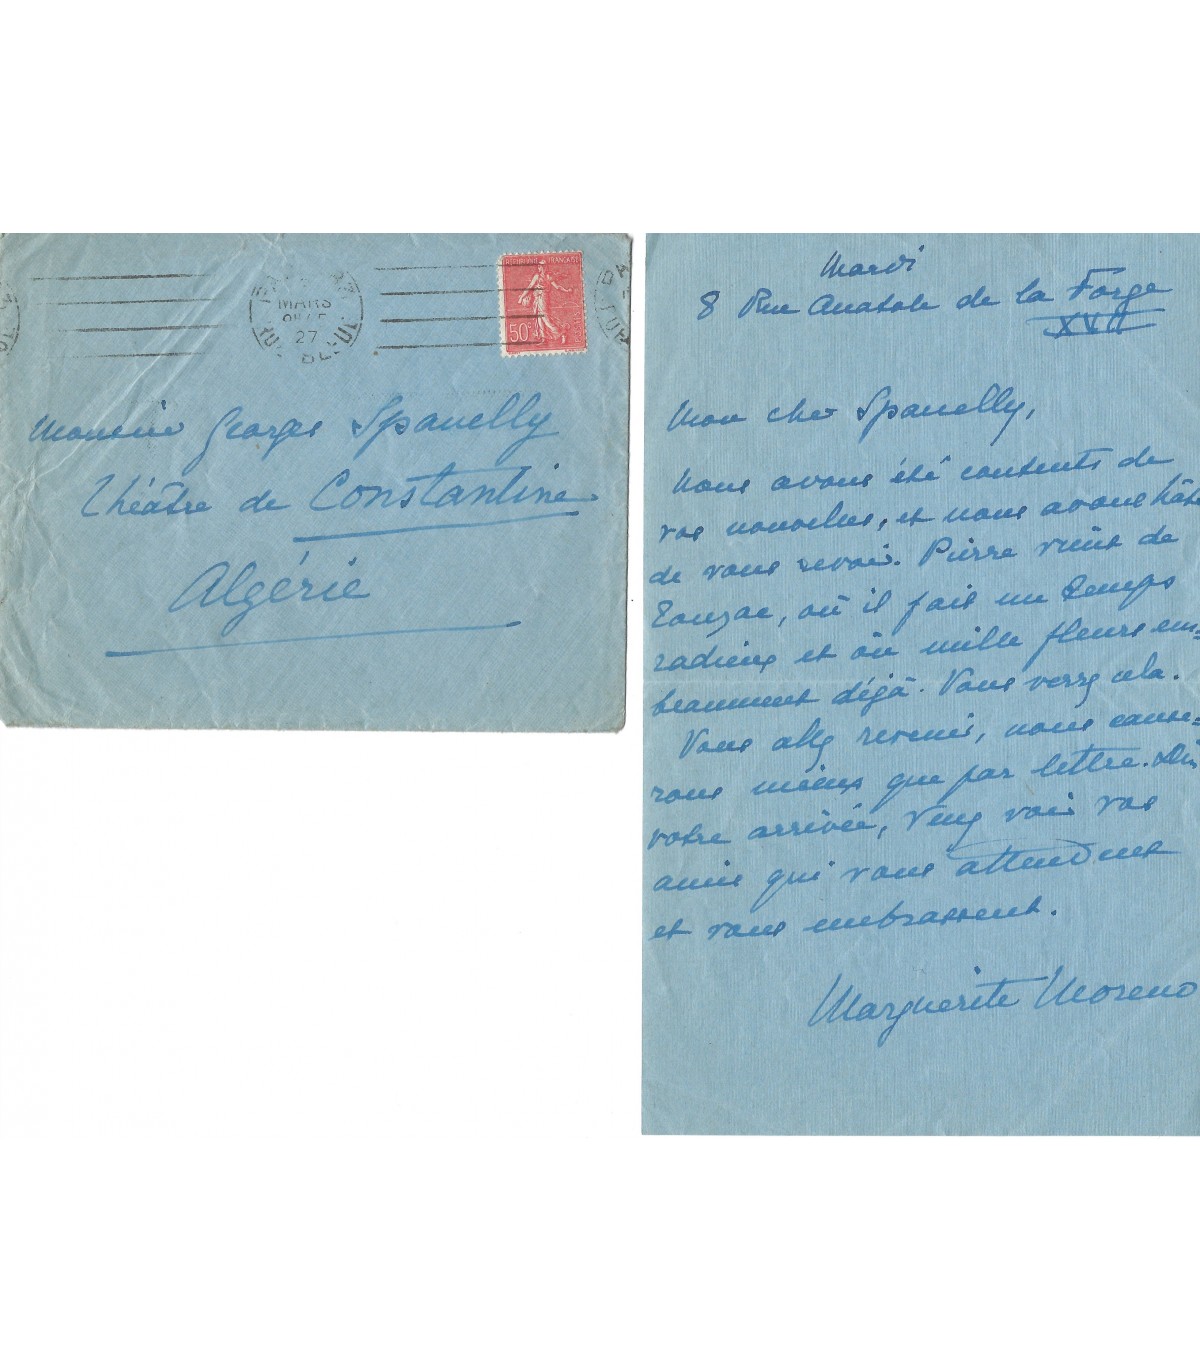 MARS
27
REPUBLIQUE FRANÇAISE
50c
Monsieur Georges Spanelly
Théâtre de Constantine
Algérie
Mardi
8 Rue Anatole de la Forge
XVII
Mon cher Spanelly,
Nous avons été contents de
vos nouvelles, et nous avons hâte
de vous revoir. Pierre vient de
Touzac, où il fait un temps
radieux et où mille fleurs em-
beaument déjà. Vous verrez cela.
Vous allez revenir, nous cause-
rons mieux que par lettre. Dès
votre arrivée, venez voir vos
amis qui vous attendent
et vous embrassent.
Marguerite Moreno